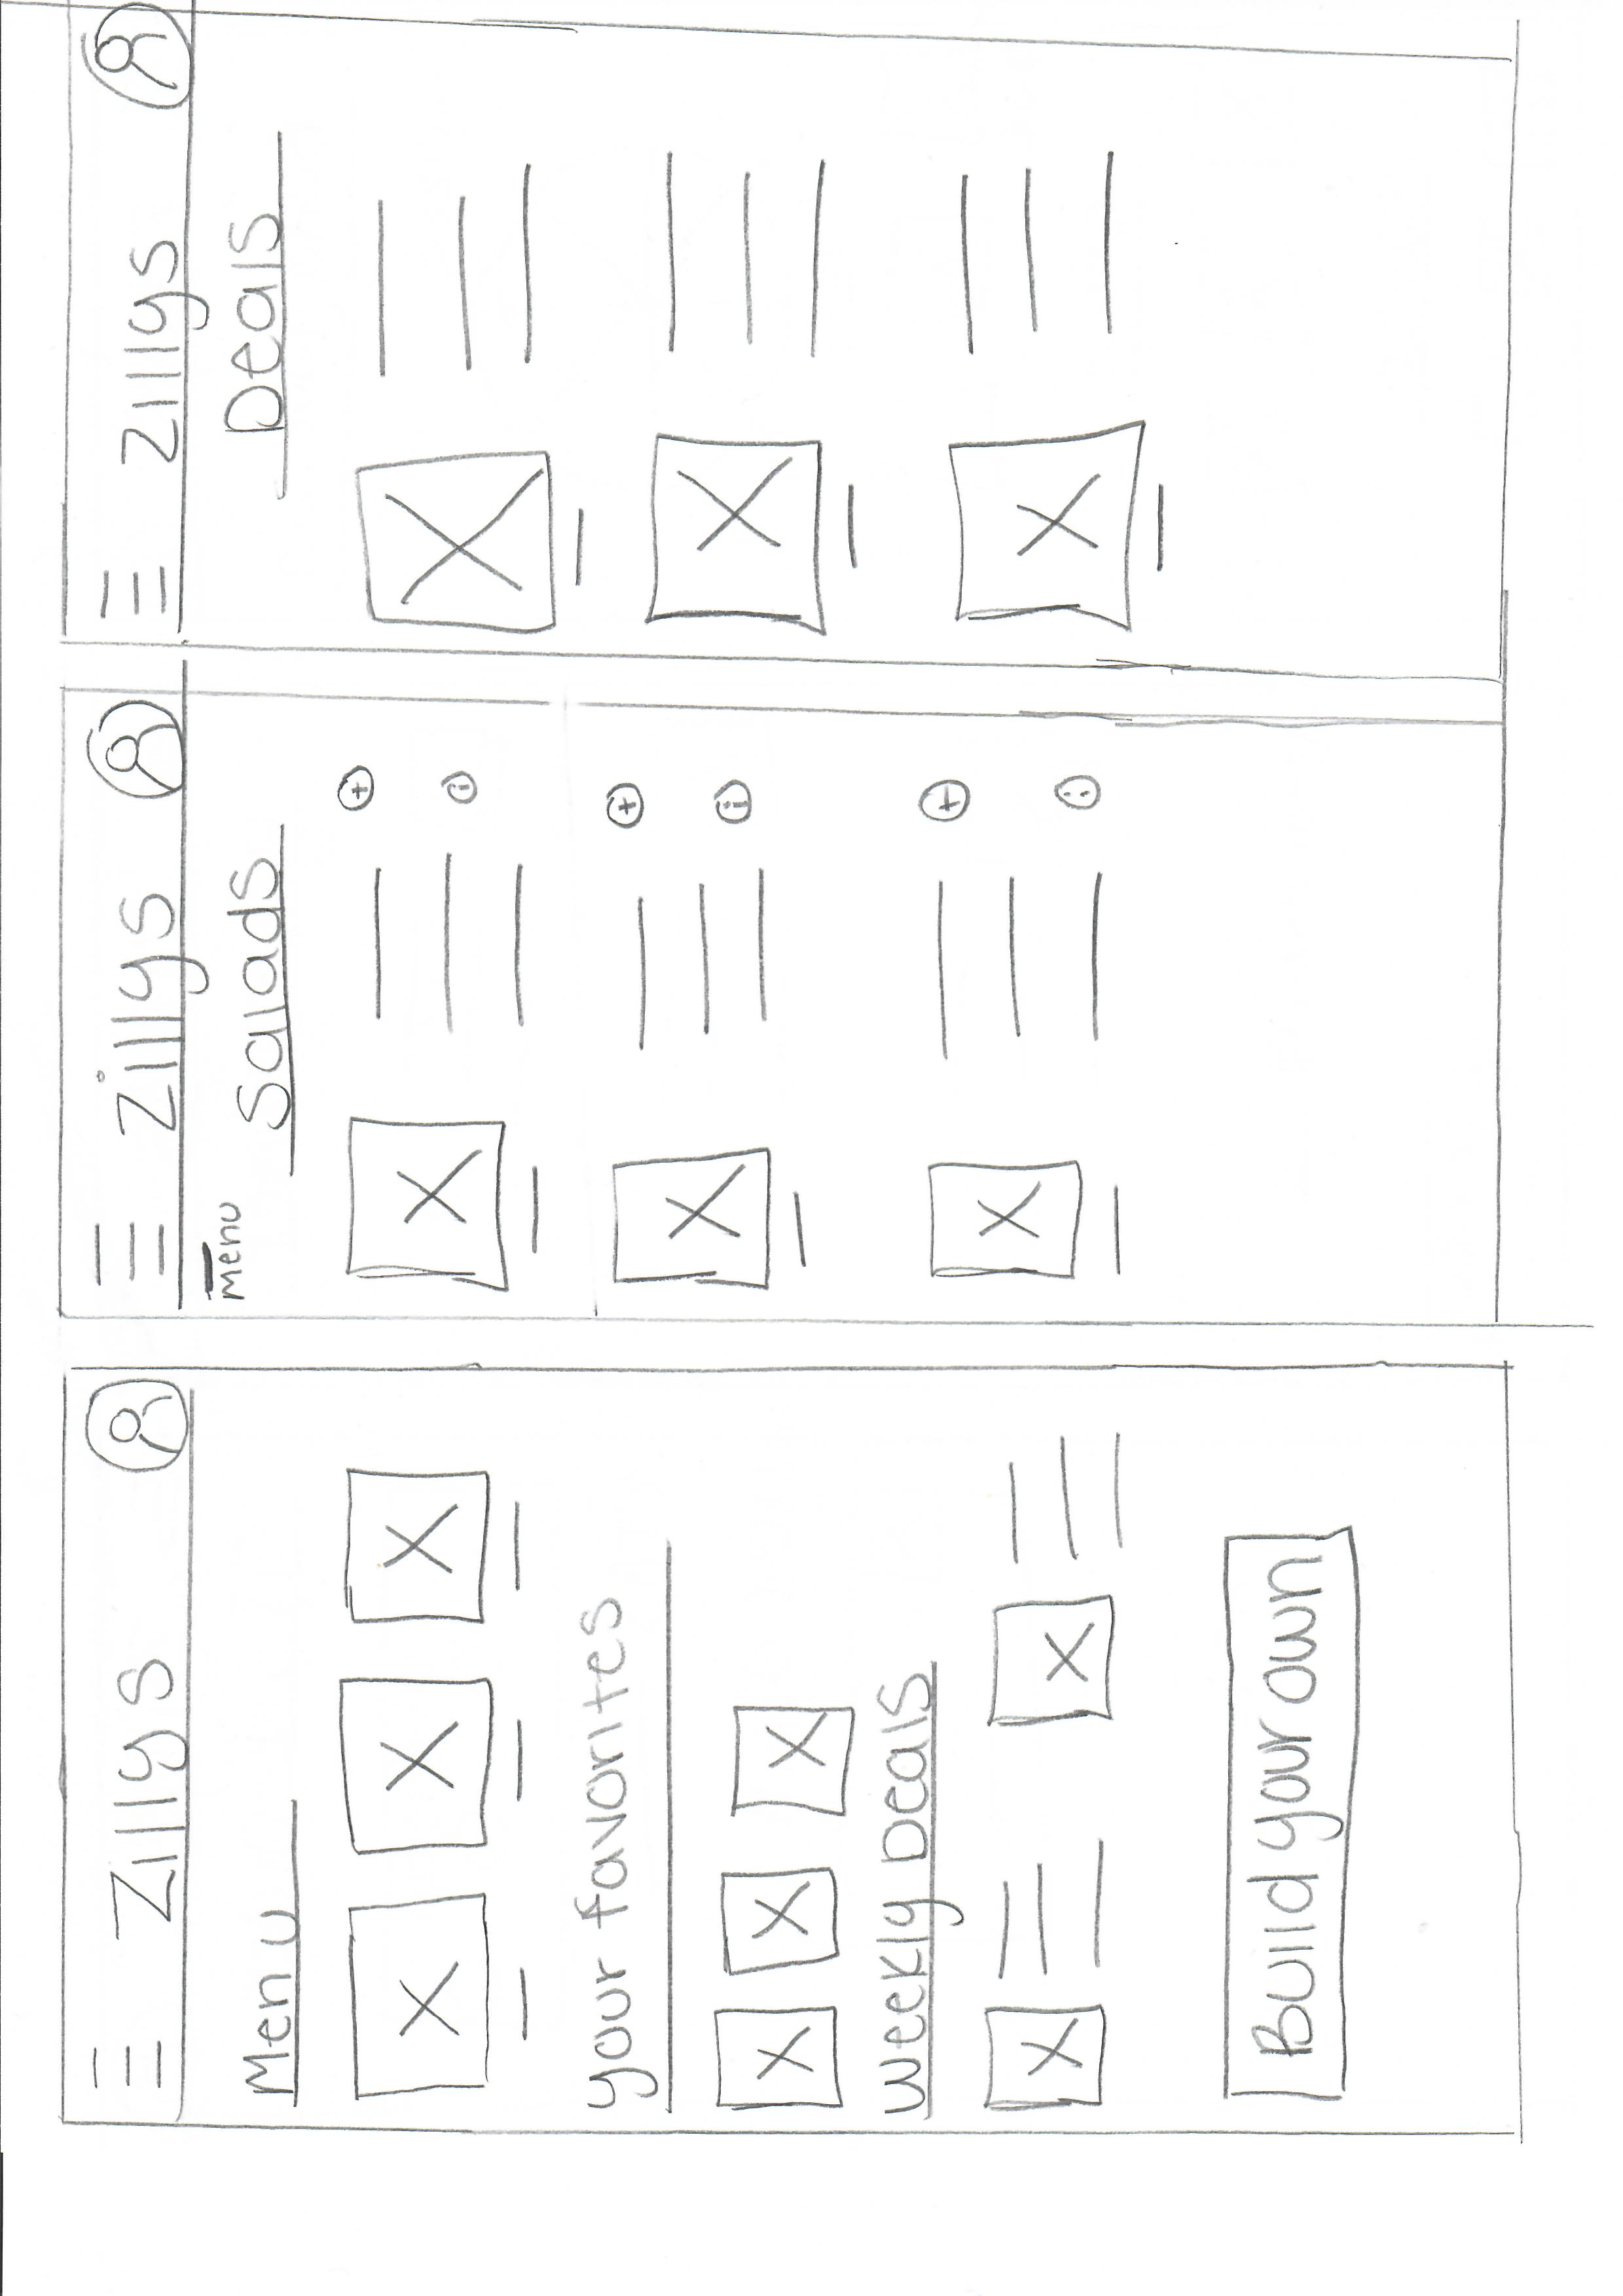 Zillys
Menu
your favorites
Weekly Deals
Build your own
Zillys
Menu
Salads
Zillys
Deals